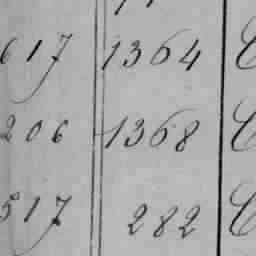 617 1364
206 1368
517 282